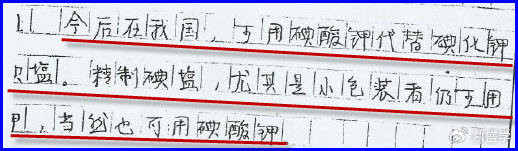 今后在我国，可用碘酸钾代替碘化钾
塩。精制碘塩，尤其是小包装者仍可用
，当然也可用碘酸钾